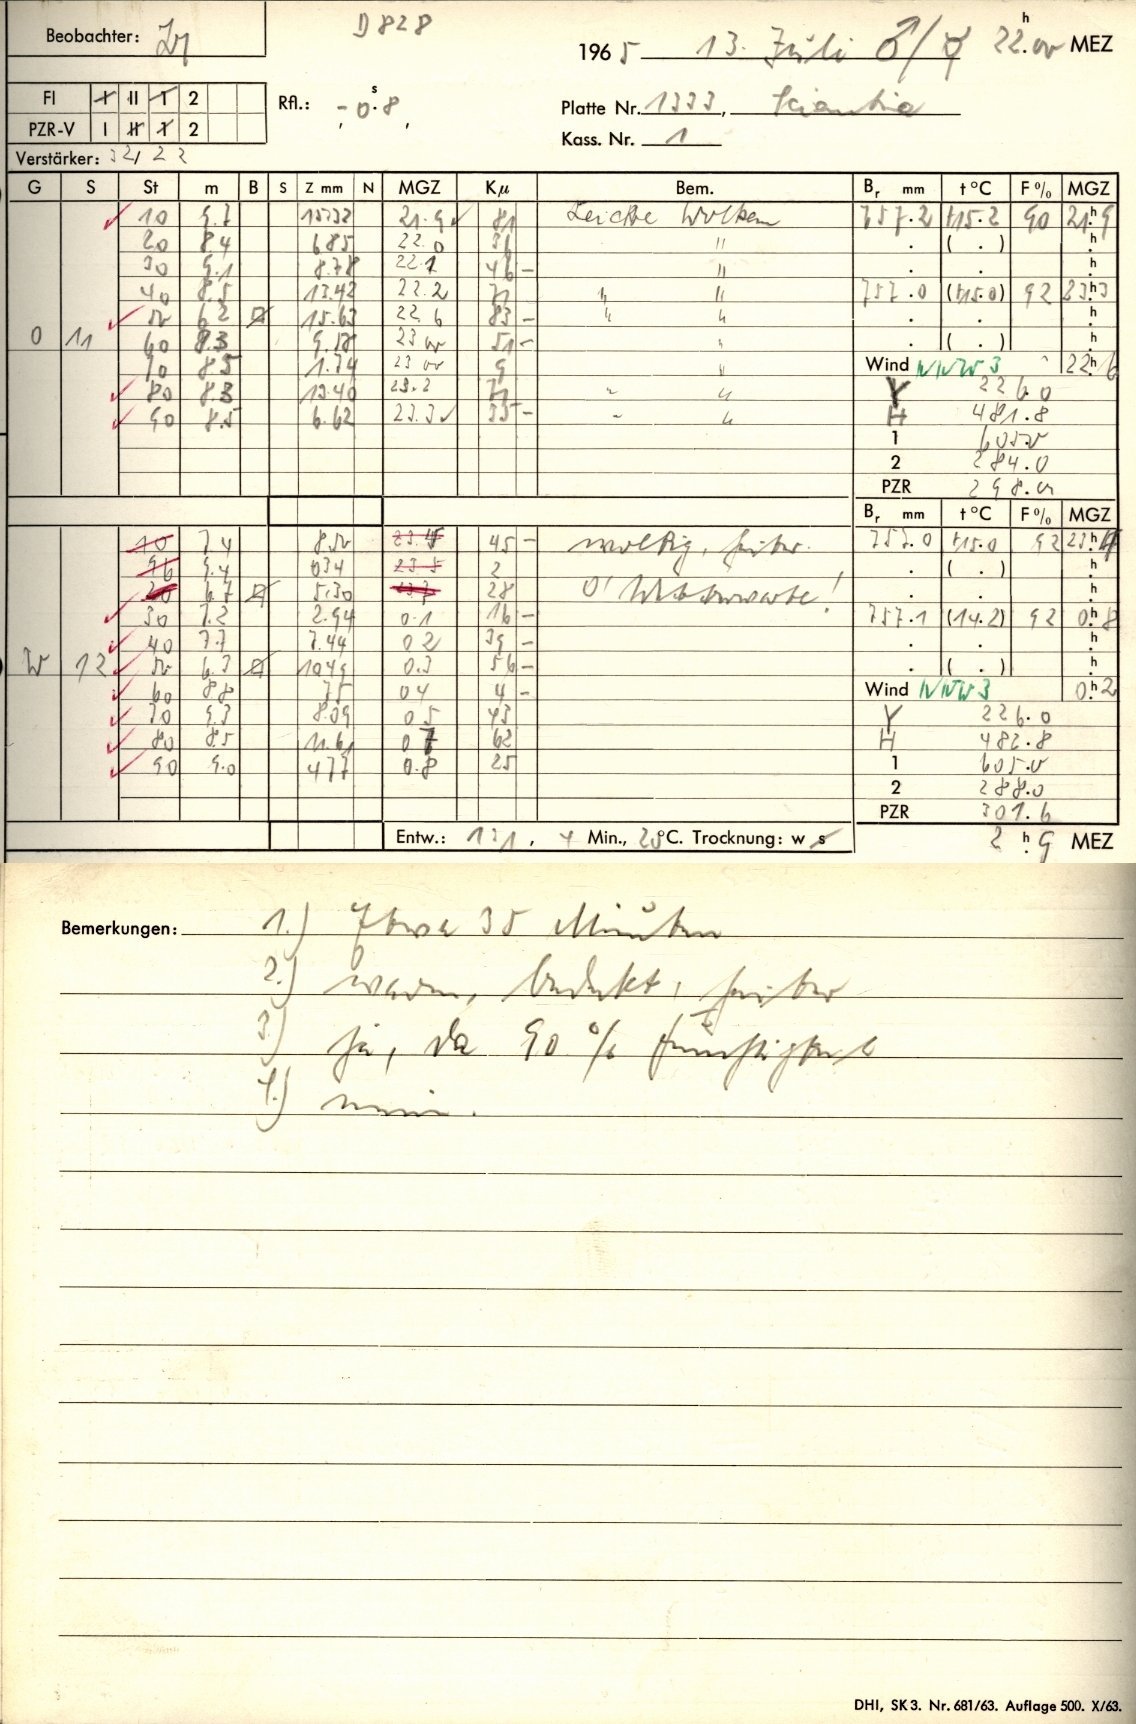 Beobachter:
D 828
1965 13. Juli ♂/☿ 22.00 h MEZ
FI I II 1 2
Rfl.: - 0.8 s
Platte Nr. 1333,
PZR-V I II 1 2
Kass. Nr. 1
Verstärker: 32/22
G S St m B S Z mm N MGZ Kμ Bem. Br mm t °C F % MGZ
10 9.7 15732 21.9 81 Leichte Wolken 757.2 +15.2 90 21h9
20 8.4 6.85 22.0 36 " ( . )
30 9.1 8.78 22.1 46 – "
40 8.5 13.42 22.2 71 " " 757.0 (+15.0) 92 23h3
50 6.2 15.63 22.6 83 – " "
O 11 60 8.3 9.58 23 00 51 – " ( . )
70 8.5 1.74 23 00 9 " Wind NNW 3 22h6
80 8.3 13.40 23.2 71 " " Y 226.0
90 8.5 6.62 23.3 35 – " " H 481.8
1 605.0
2 284.0
PZR 298.0
Br mm t °C F % MGZ
10 7.4 8.50 23.4 45 – wolkig, heiter. 757.0 +15.0 92 23h4
9.4 034 23.5 2 ( . )
6.7 5.30 28
30 7.2 2.94 0.1 16 – 757.1 (14.2) 92 0h8
40 7.7 7.44 0 2 39 –
W 12 50 6.3 1049 0.3 56 – ( . )
60 8.8 75 0 4 4 – Wind NNW 3 0h2
70 9.3 8.09 0 5 43 Y 226.0
80 8.5 11.61 0 7 62 H 482.8
90 9.0 477 0.8 25 1 605.0
2 288.0
PZR 301.6
Entw.: , 4 Min., 20 °C. Trocknung: w s 2 h 9 MEZ
Bemerkungen: 1.) Etwa 35 Minuten
2.) warm, bedeckt, heiter
3.) ja, da 90 % Feuchtigkeit
4.) nein.
DHI, SK 3. Nr. 681/63. Auflage 500. X/63.